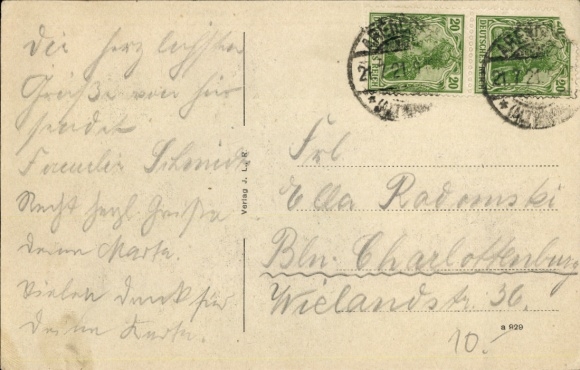 Die herzlichsten
Grüße von hier
sendet
Familie Schmidt
Recht herzl. Grüße
Deine Marta.
Vielen Dank für
Deine Karte.
Verlag J. L. R
20 20
DEUTSCHES REICH
Frl.
Ella Radomski
Bln. Charlottenburg
Wielandstr. 36.
a 929
10.-